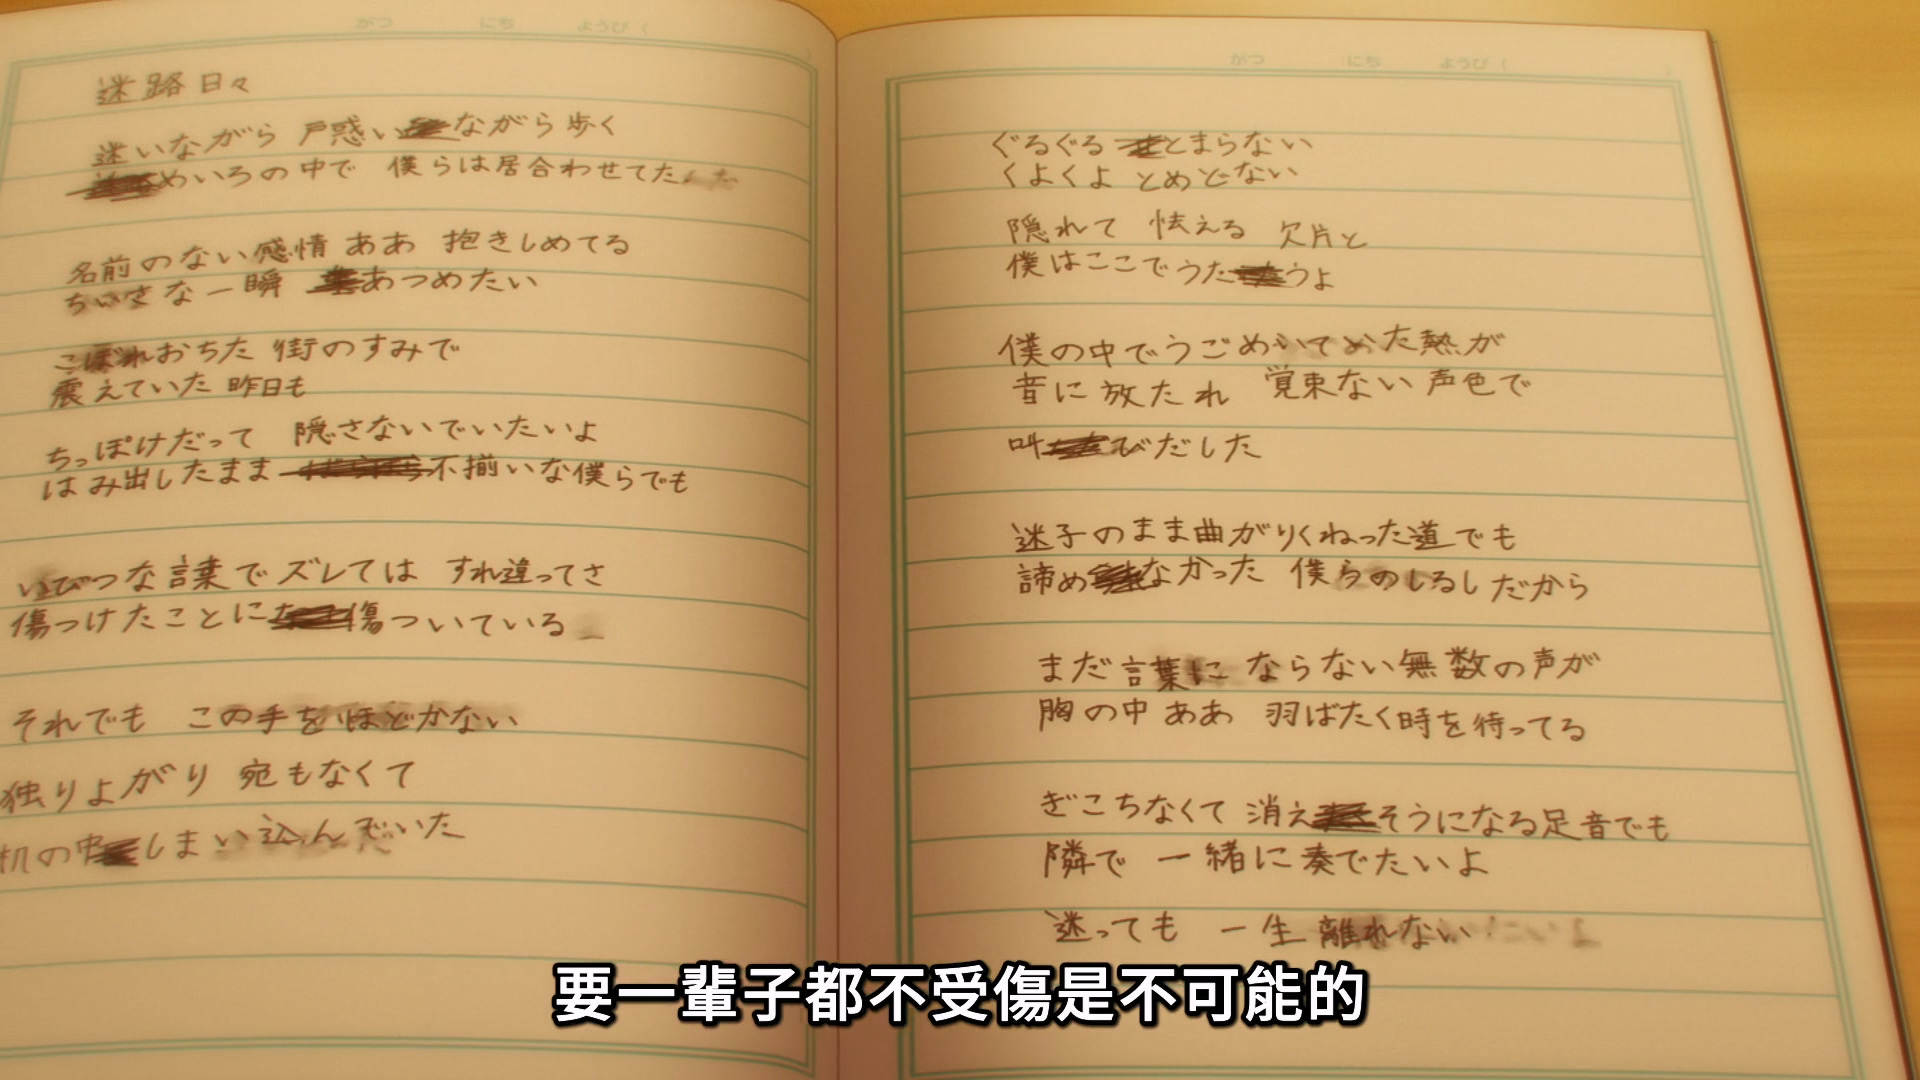 がつ にち ようび (
迷路日々
迷いながら 戸惑いながら歩く
めいろの中で 僕らは居合わせてた
名前のない感情 ああ 抱きしめてる
ちいさな一瞬 あつめたい
こぼれおちた 街のすみで
震えていた 昨日も
ちっぽけだって 隠さないでいたいよ
はみ出したまま 不揃いな僕らでも
いびつな言葉で ズレては すれ違ってさ
傷つけたことに傷ついている
それでも この手をほどかない
独りよがり 宛もなくて
机の中しまい込んでいた
がつ にち ようび (
ぐるぐる とまらない
くよくよ とめどない
隠れて 怯える 欠片と
僕はここでうたうよ
僕の中でうごめいてた熱が
音に放たれ 覚束ない声色で
叫びだした
迷子のまま曲がりくねった道でも
諦めなかった 僕らのしるしだから
まだ言葉に ならない無数の声が
胸の中 ああ 羽ばたく時を待ってる
ぎこちなくて 消えそうになる足音でも
隣で 一緒に奏でたいよ
迷っても 一生 離れない
要一輩子都不受傷是不可能的